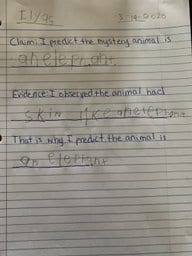 Ilyas 3-19-2020
Claim: I predict the mystery animal is
an elephant.
Evidence: I observed the animal had
skin like an elephant
That is why I predict the animal is
an elephant